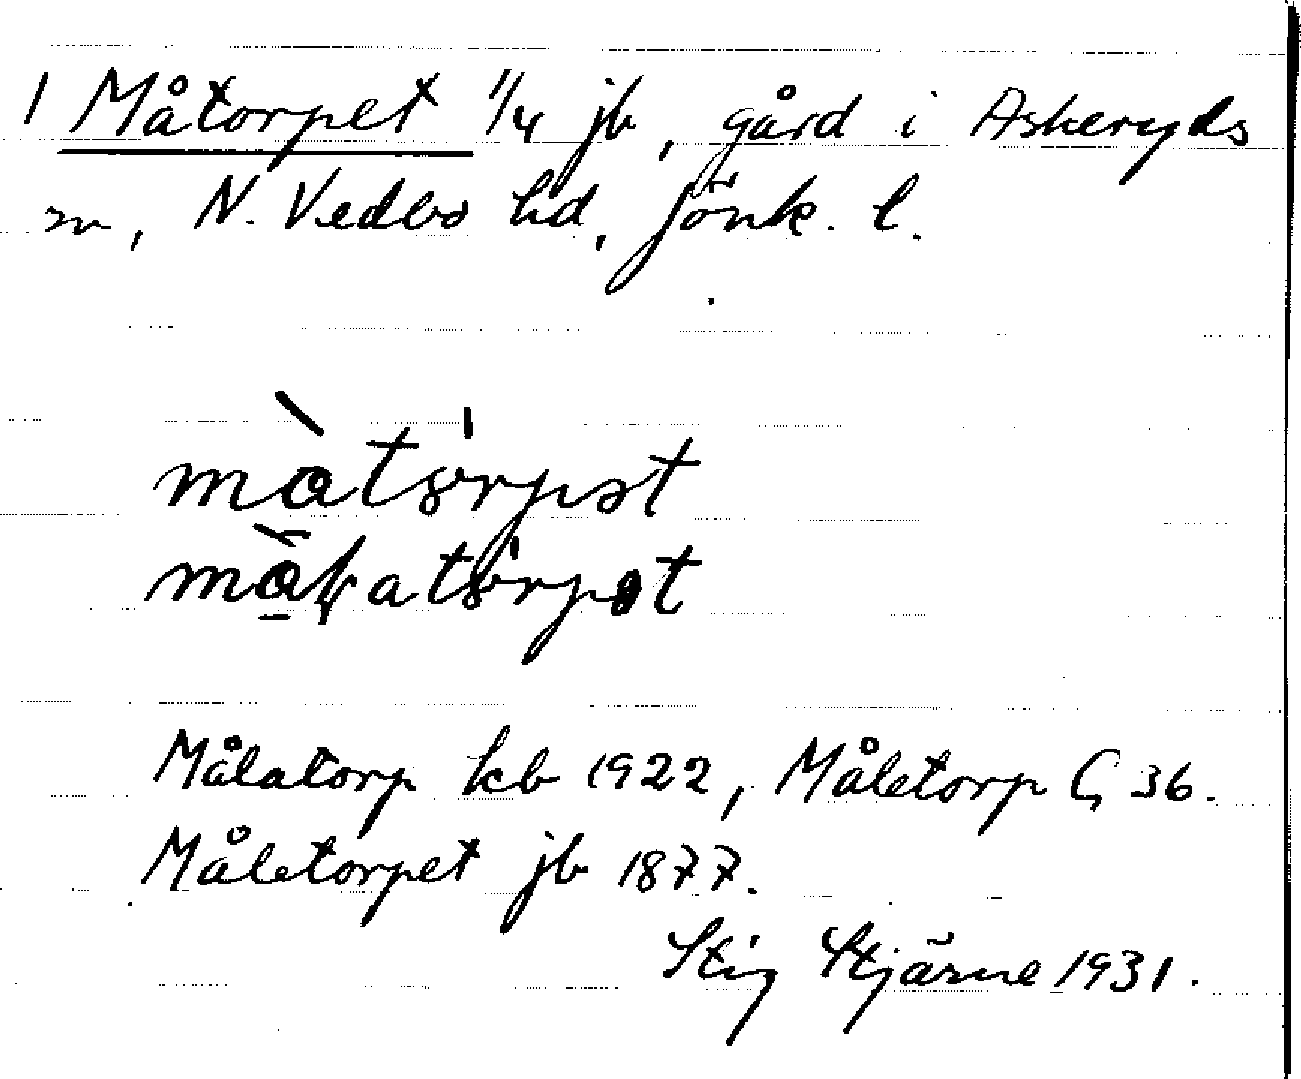 1 Måtorpet 1/4 jb, gård i Askeryds
sn, N. Vedbo hd, Jönk. l.
Målatorp kb 1922, Måletorp G 36.
Måletorpet jb 1877.
Stig Stjärne 1931.